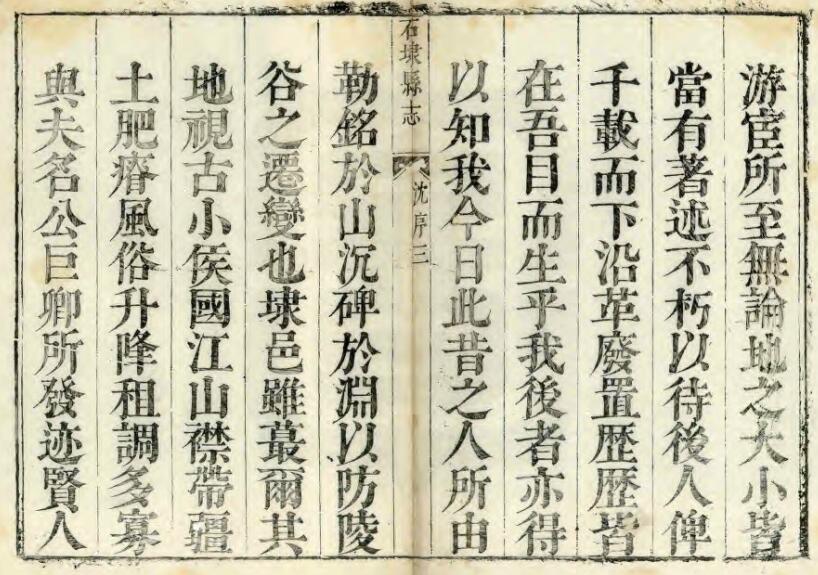 游宦所至無論地之大小皆
當有著述不朽以待後人俾
千載而下沿革廢置歷歷皆
在吾目而生乎我後者亦得
以知我今日此昔之人所由
石埭縣志
沈序三
勒銘於山沉碑於淵以防陵
谷之遷變也埭邑雖蕞爾其
地視古小侯國江山襟帶疆
土肥瘠風俗升降租調多寡
與夫名公巨卿所發迹賢人